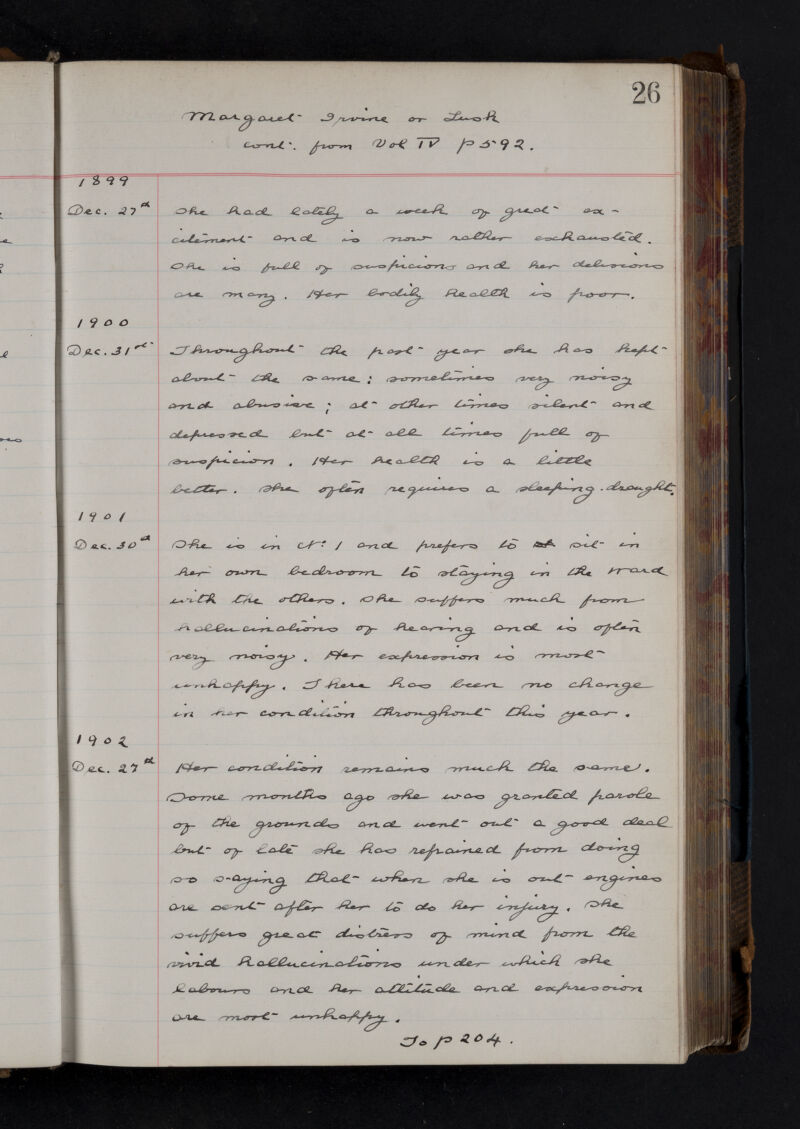 26
Margaret Irvine or Lusk
cont. from Vol IV p 592.
1899
Dec. 27th She had lately a week of great ex-
citement and is now rather exhausted.
She is full of suspicions and her delusions
are many. Her bodily health is poor.
1900
Dec. 31st Throughout the past year she has kept
about the same; sometimes very noisy
and abusive; at other times silent and
depressed but at all times full of
suspicion. Her health is a little
better. She often requires a sleeping-draught.
1901
Dec. 30th She is in No. 1 and prefers to sit in
her own bedroom to staying in the ward
with the others. She suffers much from
hallucinations of hearing and is often
very noisy. Her expression is most
unhappy. There has been no change
in her condition throughout this year.
1902
Dec. 27th Her condition remains much the same.
Some months ago she was granted parole
of the grounds and went out a good deal
but of late she has refrained from doing
so saying that when she is out engines
are sent after her to do her injury. She
suffers great distress of mind from the
vivid hallucinations under which she
labours and her attitude and expression
are most unhappy.
To p 204.